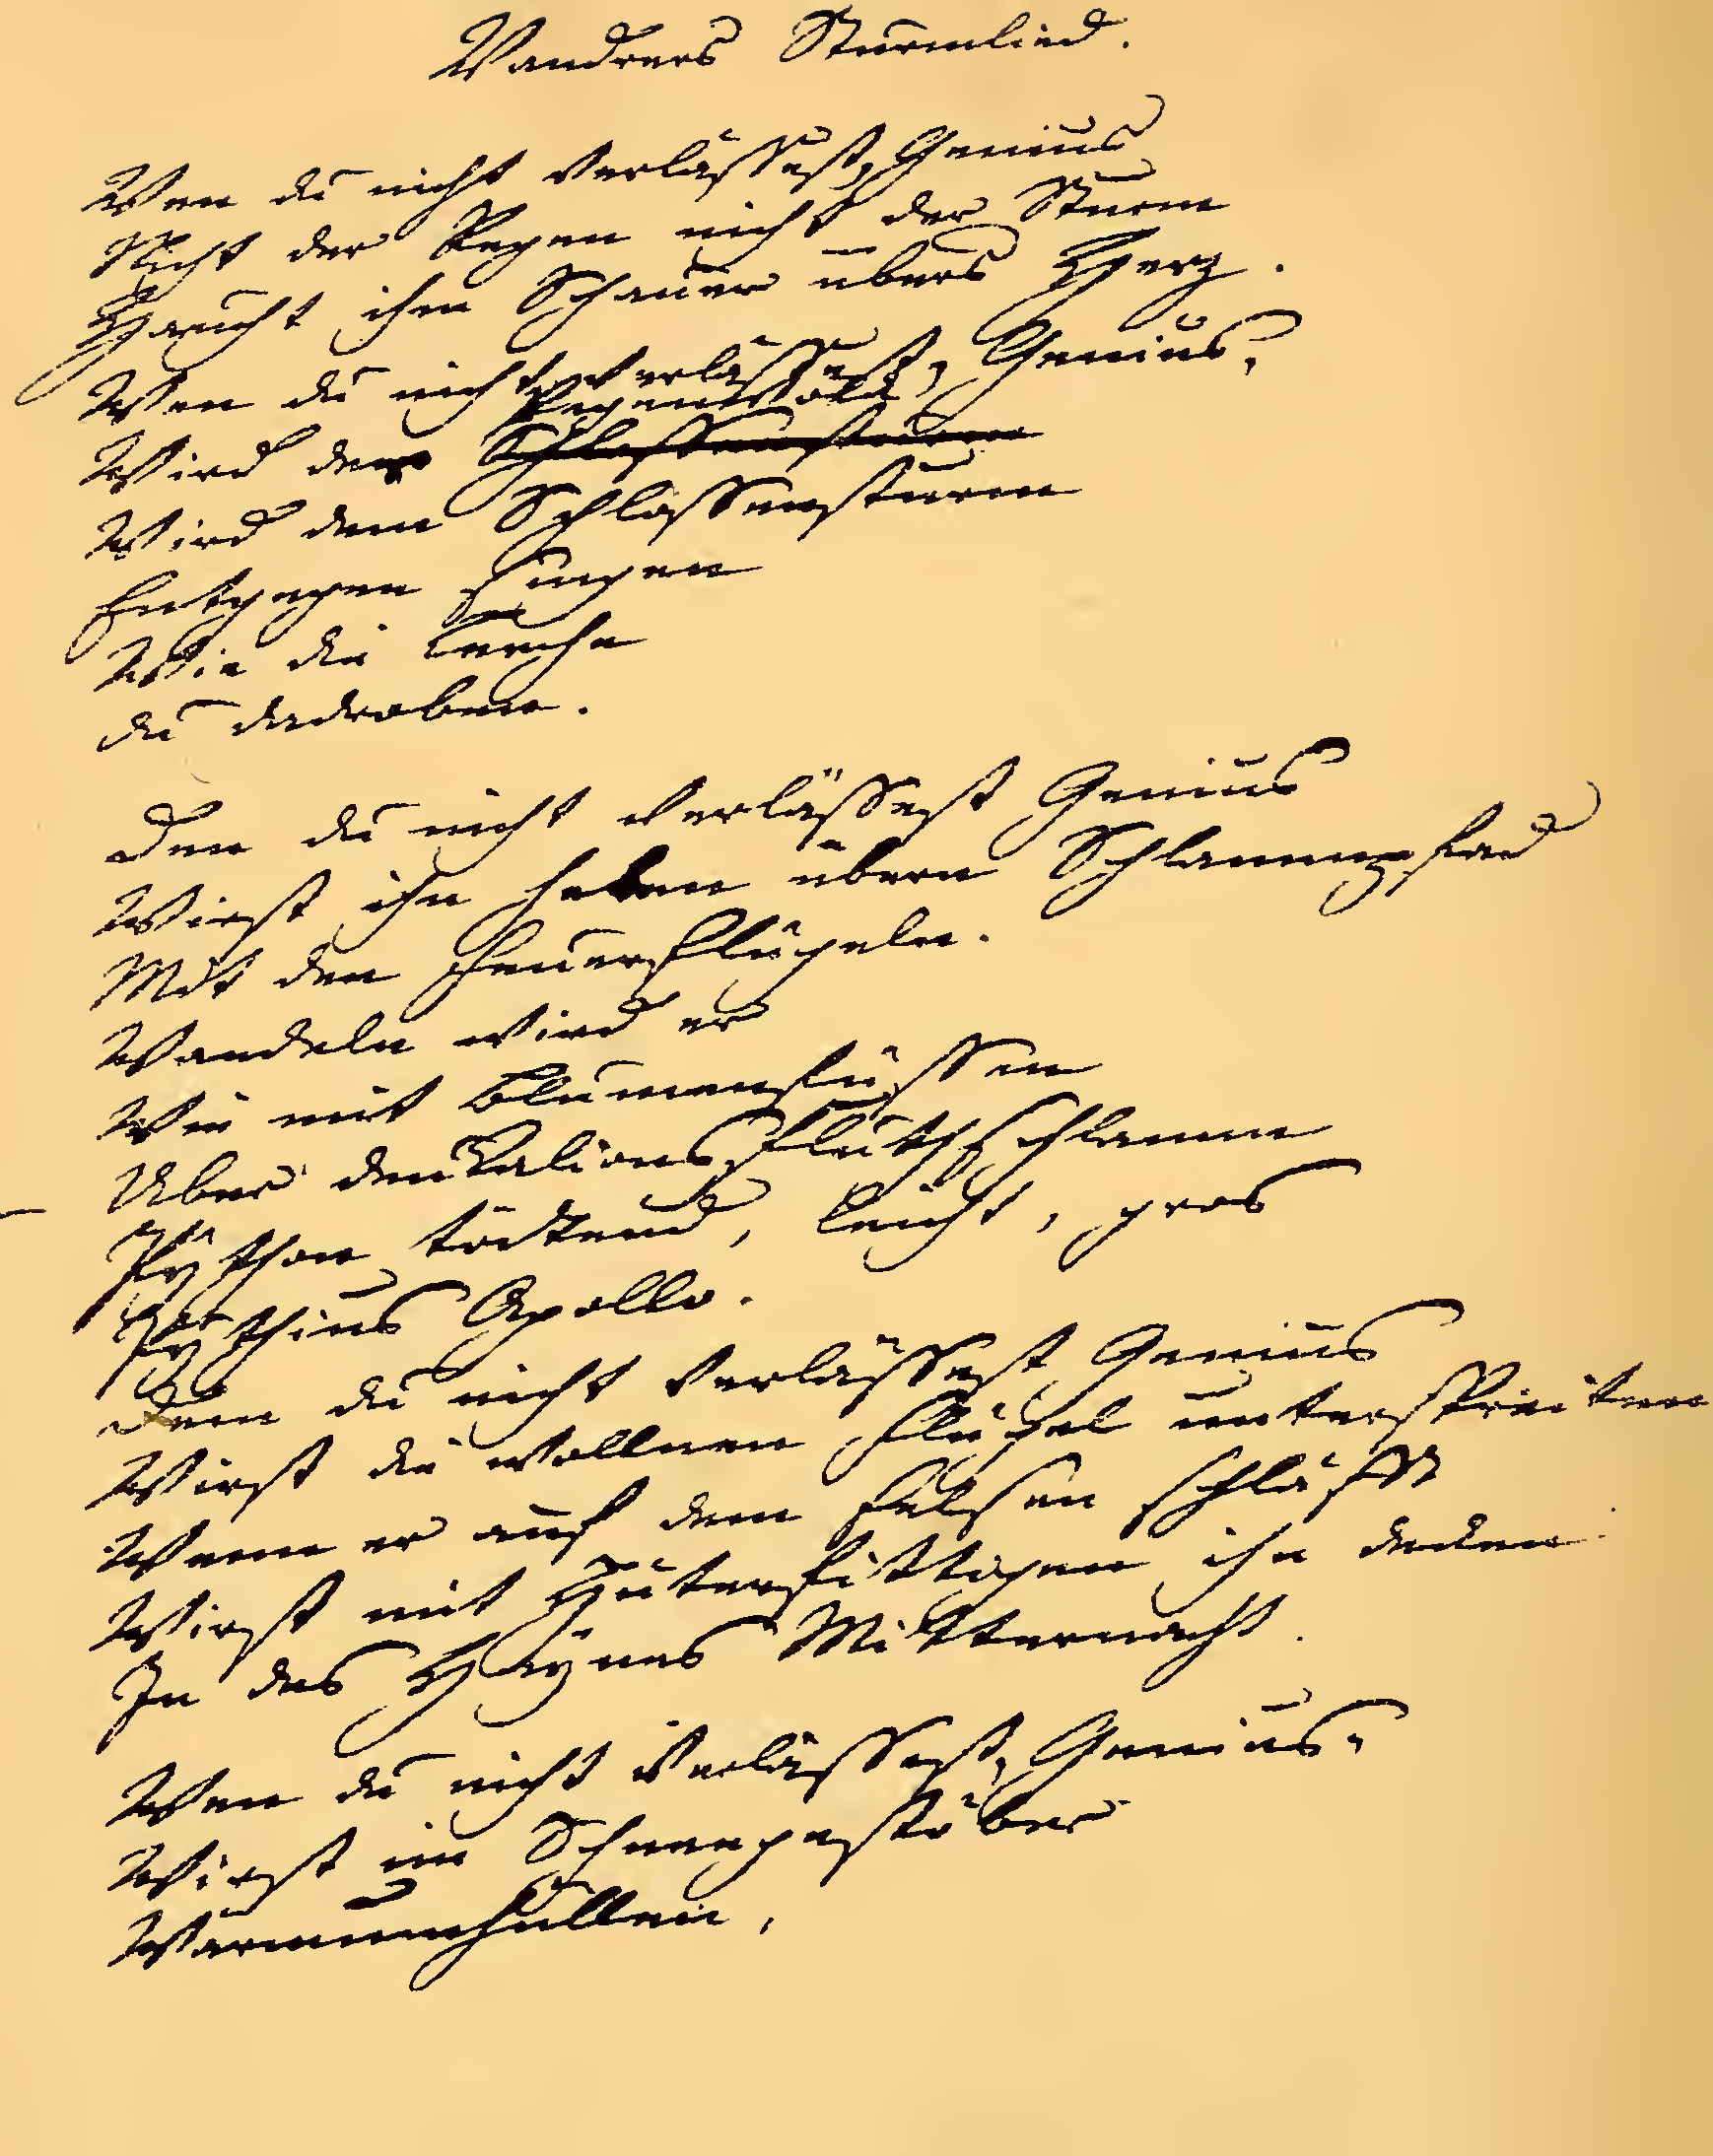 Wandrers Sturmlied.
Wen du nicht verlässest, Genius
Nicht der Regen nicht der Sturm
Haucht ihm Schauer übers Herz.
Wen du nicht verlässest, Genius,
Regenwolk
Wird der Schlossensturm
Wird dem Schlossensturm
Entgegen singen
Wie die Lerche
du dadroben.
Den du nicht verlässest Genius
Wirst ihn heben übern Schlammpfad
Mit den Feuerflügeln.
Wandeln wird er
Wie mit Blumenfüssen
Über Deukalions Fluthschlamm
Python tödtend, leicht, gros
Pythius Apollo.
Dem du nicht verlässest Genius
Wirst die wollnen Flügel unterspreiten
Wenn er auf dem Felsen schläfft
Wirst mit Hüterfittigen ihn decken
In des Haynes Mitternacht.
Wen du nicht verlässest, Genius,
Wirst im Schneegestöber
Warmumhüllen,